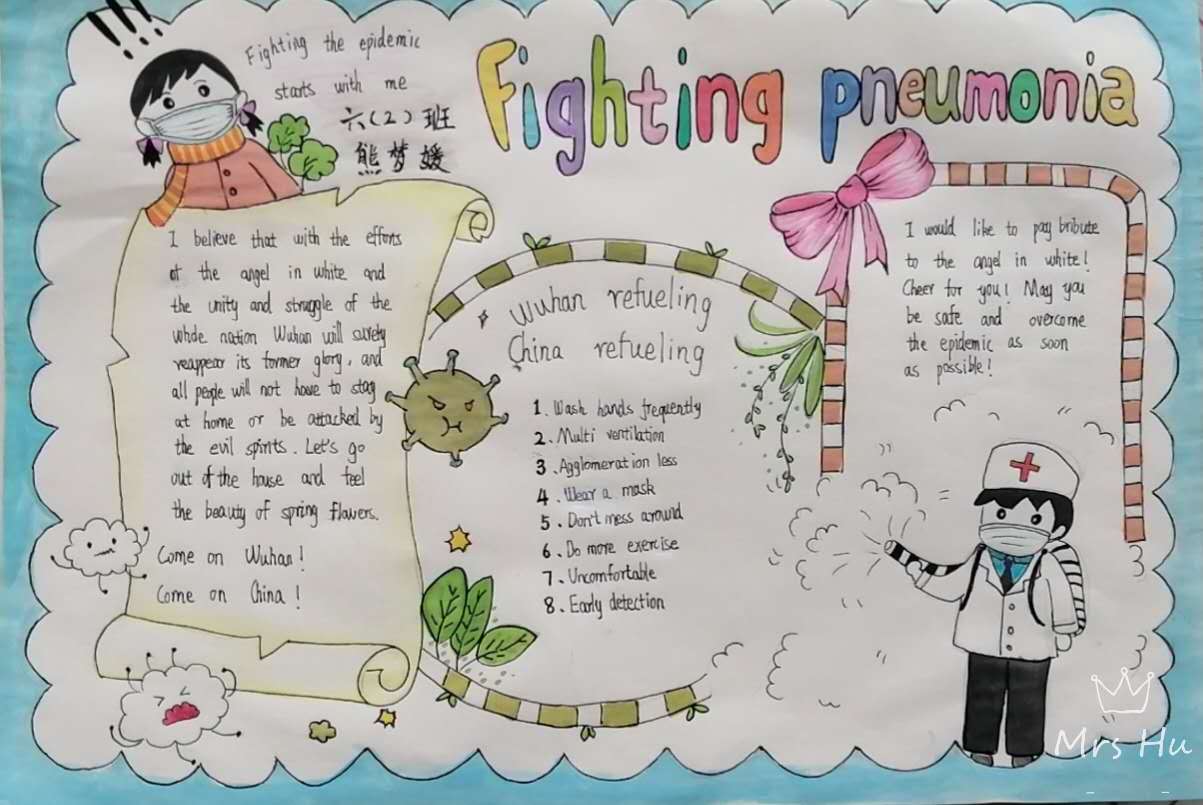 Fighting the epidemic
starts with me
六(2)班
熊梦媛
Fighting pneumonia
I believe that with the efforts
of the angel in white and
the unity and struggle of the
whole nation Wuhan will surely
reappear its former glory, and
all people will not have to stay
at home or be attacked by
the evil spirits. Let's go
out of the house and feel
the beauty of spring flowers.
Come on Wuhan!
Come on China!
Wuhan refueling
China refueling
1、Wash hands frequently
2、Multi ventilation
3、Agglomeration less
4、Wear a mask
5、Don't mess around
6、Do more exercise
7、Uncomfortable
8、Early detection
I would like to pay bribute
to the angel in white!
Cheer for you! May you
be safe and overcome
the epidemic as soon
as possible!
Mrs Hu